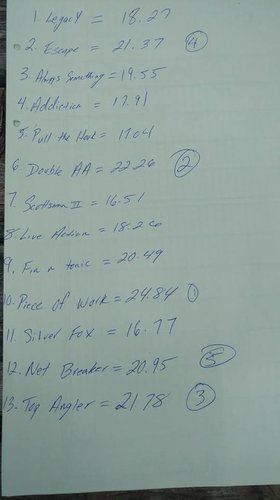 1. Legacy = 18.27
2. Escape = 21.37 4
3. Always Something = 19.55
4. Addiction = 17.91
5. Pull the Hook = 17.04
6. Double AA = 22.26 2
7. Scottsman II = 16.51
8. Live Action = 18.20
9. Fin n tonic = 20.49
10. Piece of Work = 24.84 1
11. Silver Fox = 16.77
12. Net Breaker = 20.95 5
13. Top Angler = 21.78 3